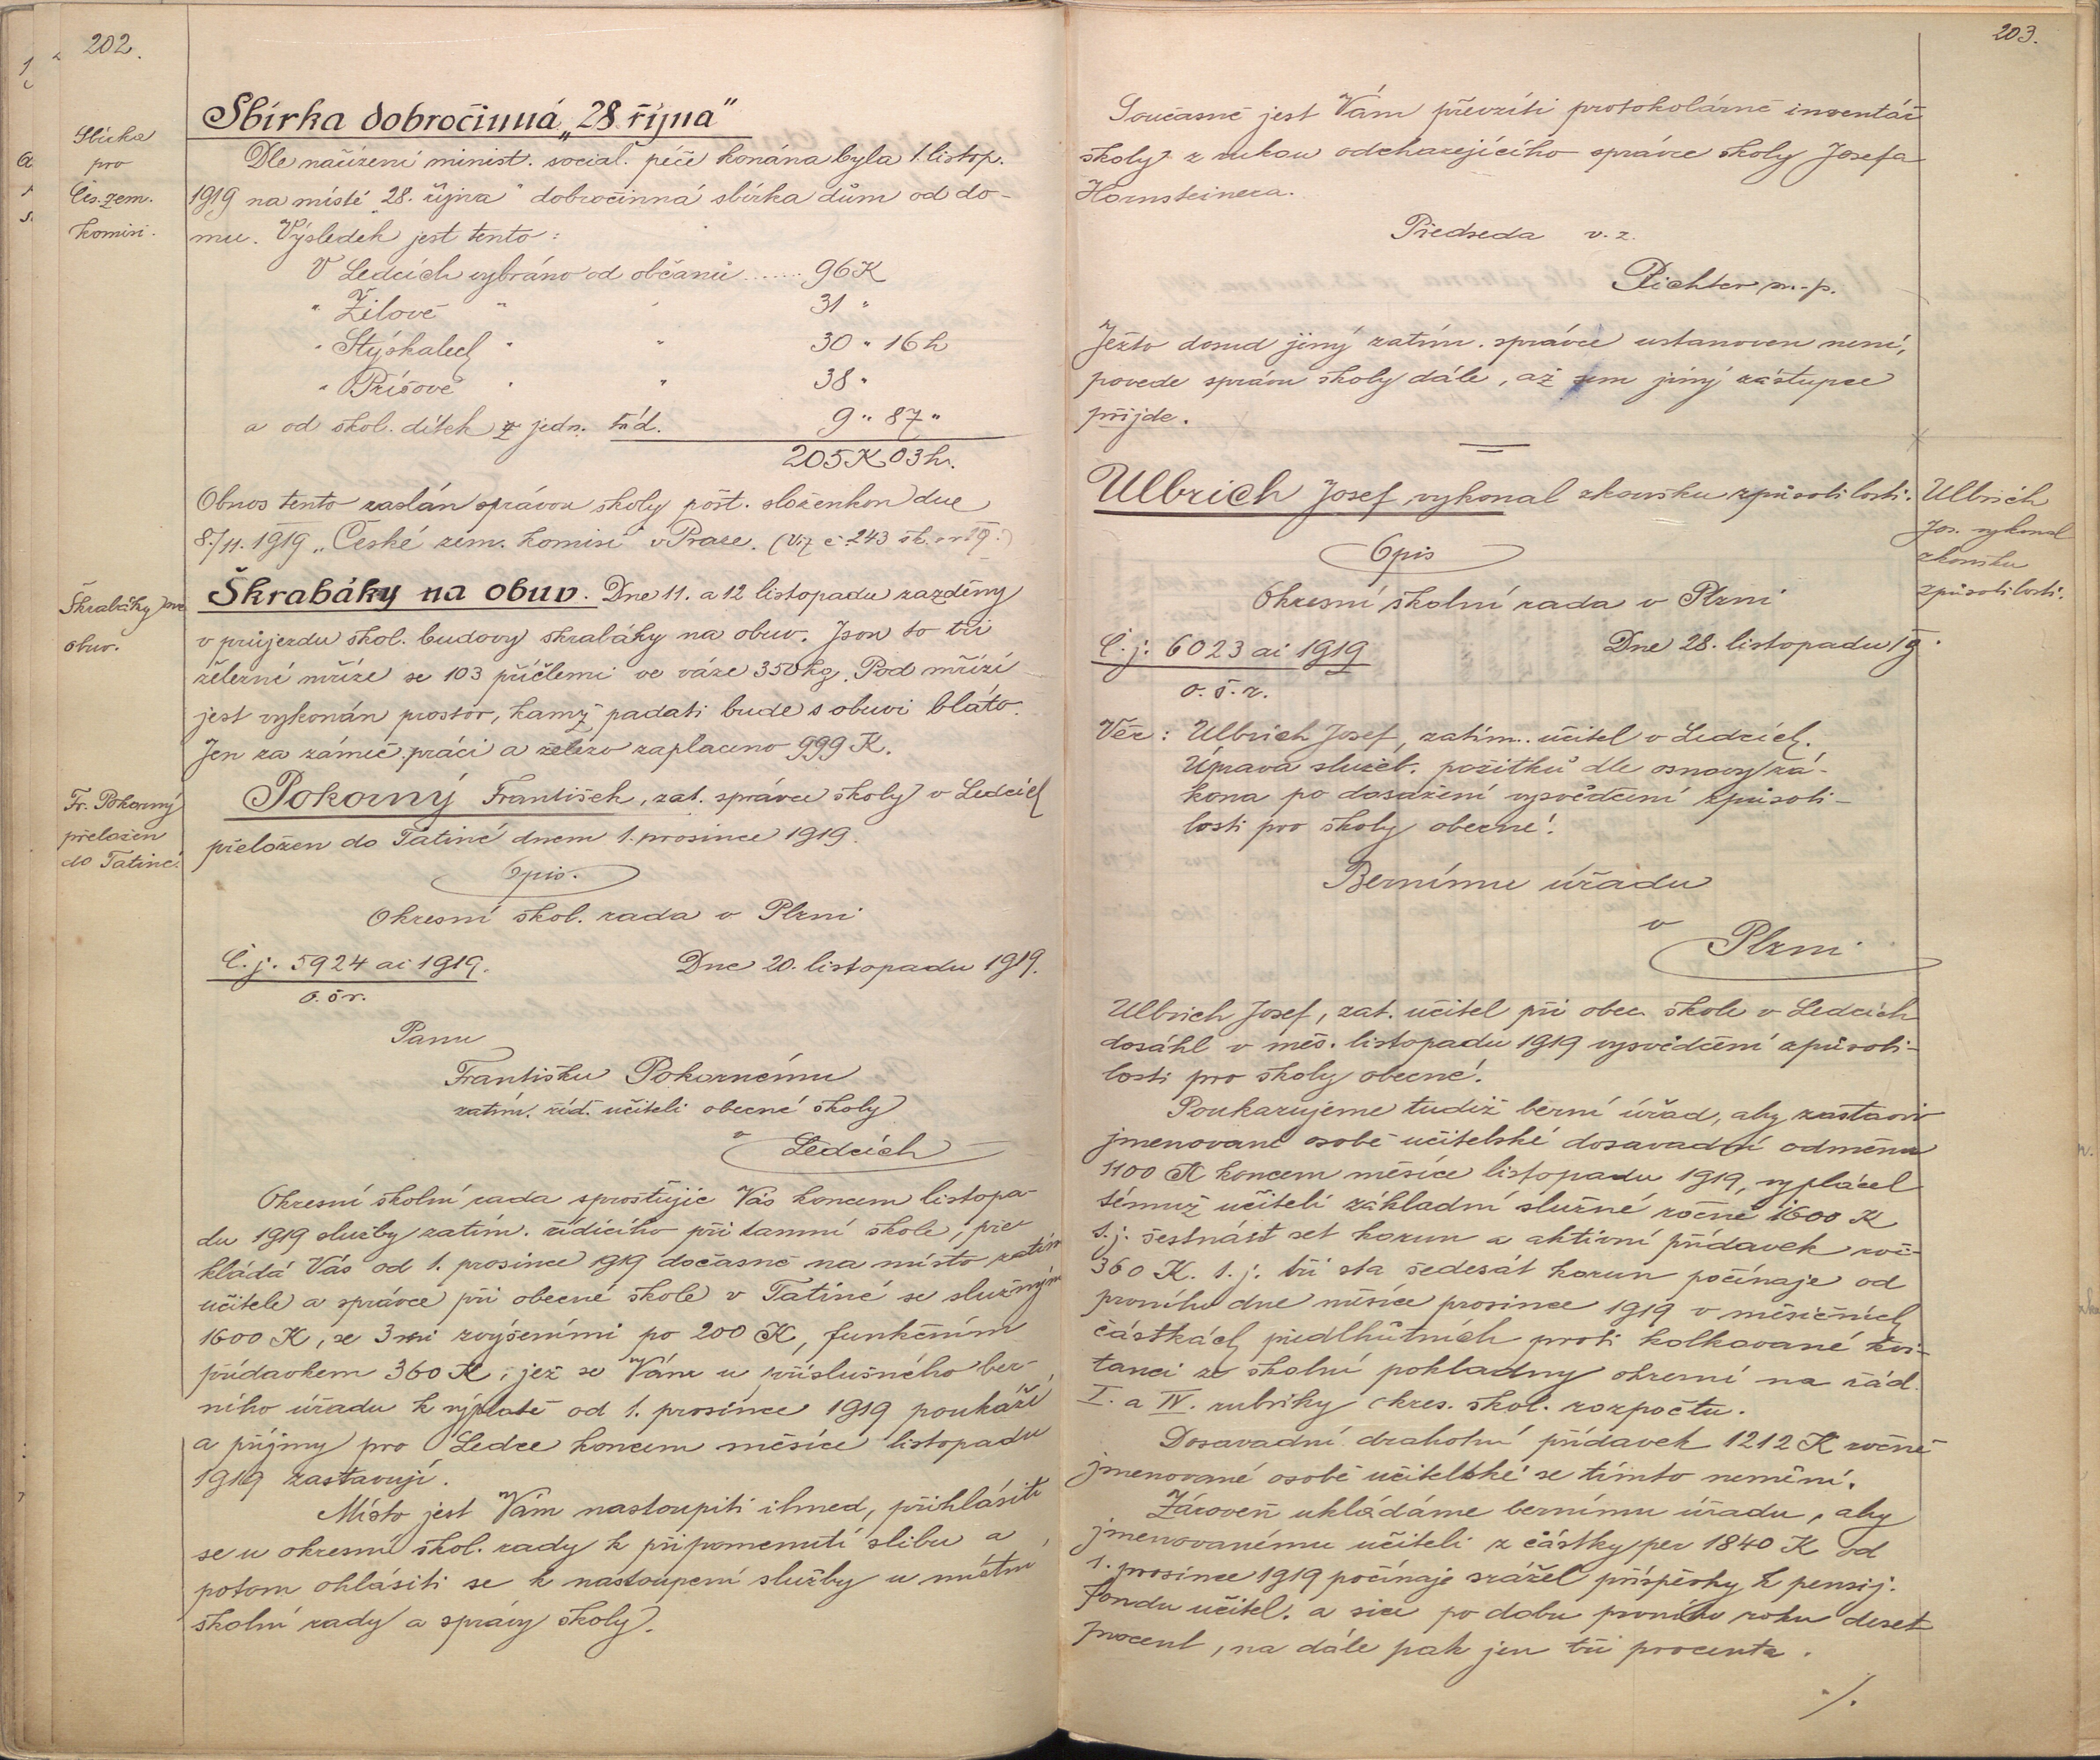 202.
Sbírka
pro
Čes. zem.
komisi.
Sbírka dobročinná „28 října"
Dle nařízení minist. social. péče konána byla 1. listop.
1919 na místě „28. října" dobročinná sbírka dům od do-
mu. Výsledek jest tento:
V Ledcích vybráno od občanů ...... 96 K
" Žilově " " 31 "
" Stýskalech " " 30 " 16 h
" Příšově " " 38 "
a od škol. dítek z jedn. tříd. 9 " 87 "
205 K 03 h.
Obnos tento zaslán správou školy pošt. složenkou dne
8./11. 1919 „České zem. komisi" v Praze. (Viz č. 243 šk. r. 19.)
Škrabáky na
obuv.
Škrabáky na obuv. Dne 11. a 12 listopadu zazděny
v průjezdu škol. budovy škrabáky na obuv. Jsou to tři
železné mříže se 103 příčlemi ve váze 350 kg. Pod mříží
jest vykonán prostor, kamž padati bude s obuvi bláto.
Jen za zámeč. práci a železo zaplaceno 999 K.
Fr. Pokorný
přeložen
do Tatiné.
Pokorný František, zat. správce školy v Ledcích
přeložen do Tatiné dnem 1. prosince 1919.
Opis.
Okresní škol. rada v Plzni
Č. j. 5924 ai 1919. Dne 20. listopadu 1919.
o. š r.
Panu
Františku Pokornému
zatím. říd. učiteli obecné školy
v Ledcích
Okresní školní rada sprostujíc Vás koncem listopa-
du 1919 služby zatím. řídícího při tamní škole, pře-
kládá Vás od 1. prosince 1919 dočasně na místo zatím
učitele a správce při obecné škole v Tatiné se služným
1600 K, se 3mi zvýšeními po 200 K, funkčním
přídavkem 360 K, jež se Vám u příslušného ber-
ního úřadu k výplatě od 1. prosince 1919 poukáží
a příjmy pro Ledce koncem měsíce listopadu
1919 zastavují.
Místo jest Vám nastoupiti ihned, přihlásiti
se u okresní škol. rady k připomenutí slibu a
potom ohlásiti se k nastoupení služby u místní
školní rady a správy školy.
203.
Současně jest Vám převzíti protokolárně inventář
školy z rukou odcházejícího správce školy Josefa
Hornsteinera.
Předseda v. z.
Richter m. p.
Ježto dosud jiný zatím. správce ustanoven není,
povede správu školy dále, až sem jiný zástupce
přijde.
Ulbrich Josef vykonal zkoušku způsobilosti.
Ulbrich
Jos. vykonal
zkoušku
způsobilosti.
Opis
Okresní školní rada v Plzni
Č. j. 6023 ai 1919 Dne 28. listopadu 19.
o. š. r.
Věc: Ulbrich Josef, zatím. učitel v Ledcích.
Úprava služeb. požitků dle osnovy zá-
kona po dosažení vysvědčení způsobi-
losti pro školy obecné.
Bernímu úřadu
v
Plzni
Ulbrich Josef, zat. učitel při obec. škole v Ledcích
dosáhl v měs. listopadu 1919 vysvědčení způsobi-
losti pro školy obecné.
Poukazujeme tudíž berní úřad, aby zastavil
jmenované osobě učitelské dosavadní odměnu
1100 K koncem měsíce listopadu 1919, vyplácel
témuž učiteli základní služné ročně 1600 K
t. j. šestnáct set korun a aktivní přídavek roč-
360 K. t. j. tři sta šedesát korun počínaje od
prvního dne měsíce prosince 1919 v měsíčních
částkách předlhůtních proti kolkované kvi-
tanci ze školní pokladny okresní na řád.
I. a IV. rubriky okres. škol. rozpočtu.
Dosavadní drahotní přídavek 1212 K ročně
jmenované osobě učitelské se tímto nemění.
Zároveň ukládáme bernímu úřadu, aby
jmenovanému učiteli z částky per 1840 K od
1. prosince 1919 počínaje srážel příspěvky k pensij.
fondu učitel. a sice po dobu prvního roku deset
procent, na dále pak jen tři procenta.
./.